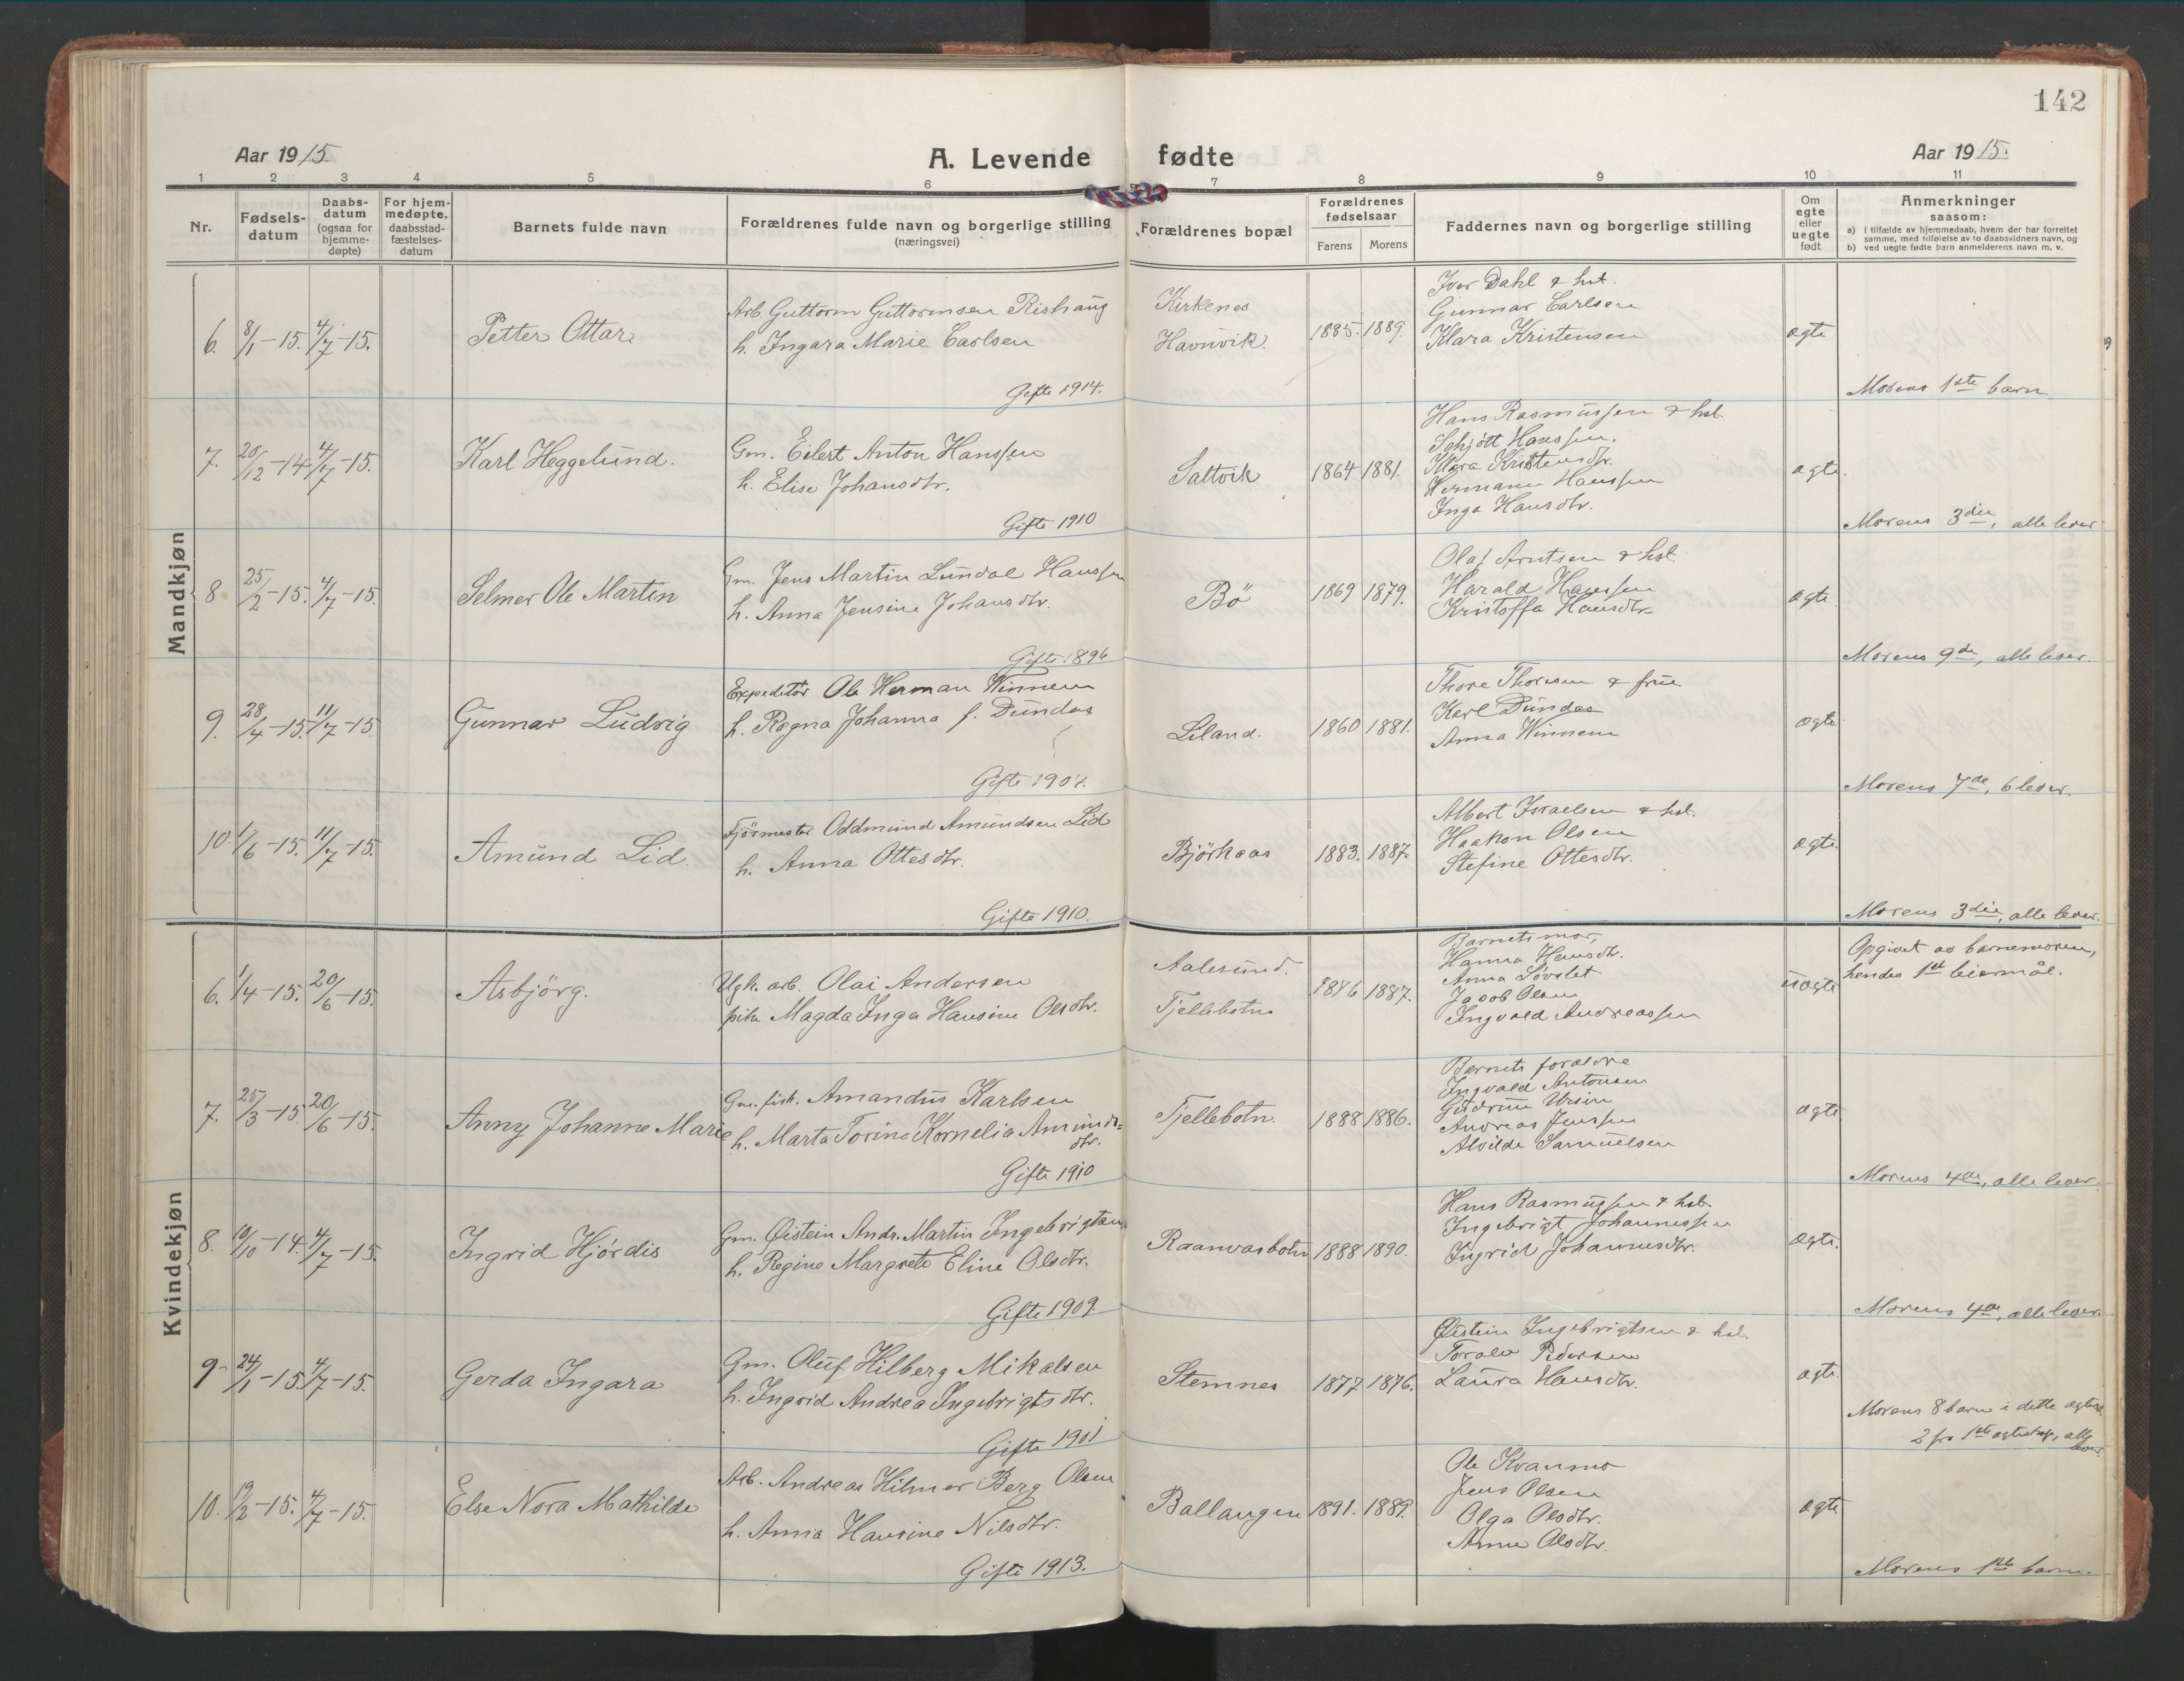 142
Aar 1915.
A. Levende fødte
Aar 1915.
1 2 3 4 5 6 7 8 9 10 11
Nr.
Fødsels-
datum
Daabs-
datum
(ogsaa for
hjemme-
døpte)
For hjem-
medøpte,
daabsstad-
fæstelses-
datum
Barnets fulde navn
Forældrenes fulde navn og borgerlige stilling
(næringsvei)
Forældrenes bopæl
Forældrenes
fødselsaar
Farens Morens
Faddernes navn og borgerlige stilling
Om
egte
eller
uegte
født
Anmerkninger
saasom:
a) i tilfælde av hjemmedaab, hvem der har forrettet
samme, med tilføielse av to daabsvidners navn, og
b) ved uegte fødte barn anmelderens navn m. v.
Mandkjøn
6. 8/1-15. 4/7-15.
Petter Ottar
Arb. Guttorm Guttormsen Rishaug
h. Ingara Marie Carlsen
Gifte 1914.
Kirkenes
Havnvik.
1885. 1889.
Iver Dahl & hst.
Gunnar Carlsen
Klara Kristensen
ægte
Morens 1ste barn
7. 20/12-14 4/7-15.
Karl Heggelund.
Gm. Eilert Anton Hanssen
h. Elise Johansdtr.
Gifte 1910
Saltvik
1864 1881.
Hans Rasmussen & hst.
Schjött Hanssen.
Klara Kristensdtr.
Hermann Hanssen
Inga Hansdtr.
ægte.
Morens 3die, alle lever
8 25/2-15. 4/7-15.
Selmer Ole Martin
Gm. Jens Martin Lundal Hanssen
h. Anna Jensine Johansdtr.
Gifte 1896
Bö
1869 1879.
Olaf Arntsen & hst.
Harald Hanssen
Kristoffa Hansdtr
ægte
Morens 9de, alle lever.
9. 28/4-15. 11/7-15
Gunnar Ludvig
Expeditör Ole Herman Winnem
h. Ragna Johanna f. Dundas
Gifte 1904.
Liland.
1860 1881.
Thore Thoresen & frue
Karl Dundas
Anna Winnem
ægte
Morens 7de, 6 lever.
10. 1/6-15. 11/7-15.
Amund Lid.
Fjösmester Oddmund Amundsen Lid
h. Anna Ottesdtr.
Gifte 1910.
Björkaas
1883. 1887.
Albert Israelsen & hst.
Haakon Olsen
Stefine Ottesdtr.
ægte.
Morens 3die, alle lever.
Kvindekjøn
6. 1/4-15. 20/6-15.
Asbjörg.
Ugk. arb. Olai Andersen
pike Magda Inga Hansine Olsdtr.
Aalesund.
Fjellebotn
1886 1887.
Barnets mor,
Hanna Hansdtr.
Anna Løvslet
Jacob Olsen
Ingvald Andreassen
uægte
Opgivet av barnemoren,
hendes 1ste leiermål.
7. 25/3-15 20/6-15.
Anny Johanne Marie
Gm. fisk. Amandus Karlsen
h. Marta Torine Kornelia Amunds-
dtr.
Gifte 1910
Fjellebotn.
1888 1886.
Barnets forældre
Ingvald Antonsen
Gudrun Ursin
Andreas Jenssen
Alvilde Samuelsen
ægte.
Morens 4de, alle lever.
8. 10/10-14. 4/7-15.
Ingrid Hjördis
Gm. Øistein Andr. Martin Ingebrigtsen
h. Regine Margrete Eline Olsdtr.
Gifte 1909.
Raanvasbotn
1888 1890.
Hans Rasmussen & hst.
Ingebrigt Johannessen
Ingrid Johannesdtr.
ægte.
Morens 4de, alle lever.
9. 24/1-15 4/7-15.
Gerda Ingara
Gm. Oluf Hilberg Mikalsen
h. Ingrid Andrea Ingebrigtsdtr.
Gifte 1901
Stemnes
1877 1876.
Øistein Ingebrigtsen & hst.
Toralv Pedersen
Laura Hansdtr.
ægte.
Morens 8 barn i dette ægtesk.
2 fra 1ste ægteskap, alle
lever
10. 19/2-15. 4/7-15.
Else Nora Mathilde
Arb. Andreas Hilmer Berg Olsen
h. Anna Hansine Nilsdtr.
Gifte 1913.
Ballangen
1891. 1889.
Ole Kvanmo
Jens Olsen
Olga Olsdtr.
Anne Olsdtr.
ægte
Morens 1ste barn.